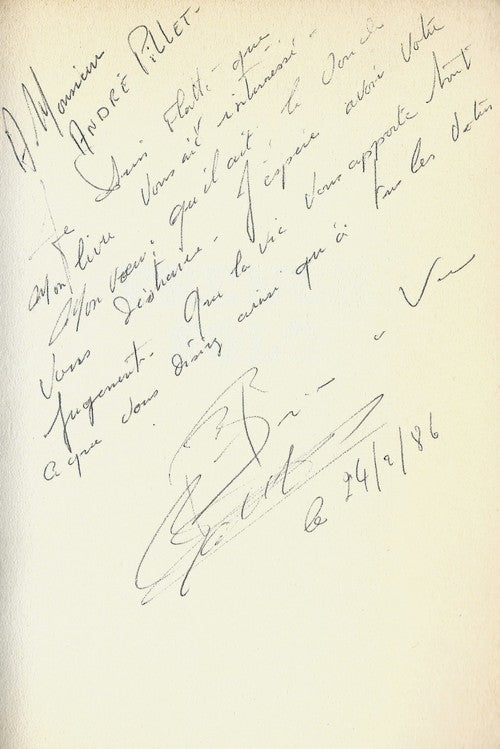 A Monsieur
ANDRÉ PILLET-
Je Suis flatté que
Mon livre vous ait intéressé-
Mon voeu, qu'il ait le don de
Vous distraire- J'espère avoir votre
Jugement- Que la vie vous apporte tout
ce que vous désirez ainsi qu'à tous les vôtres
le 24/2/86